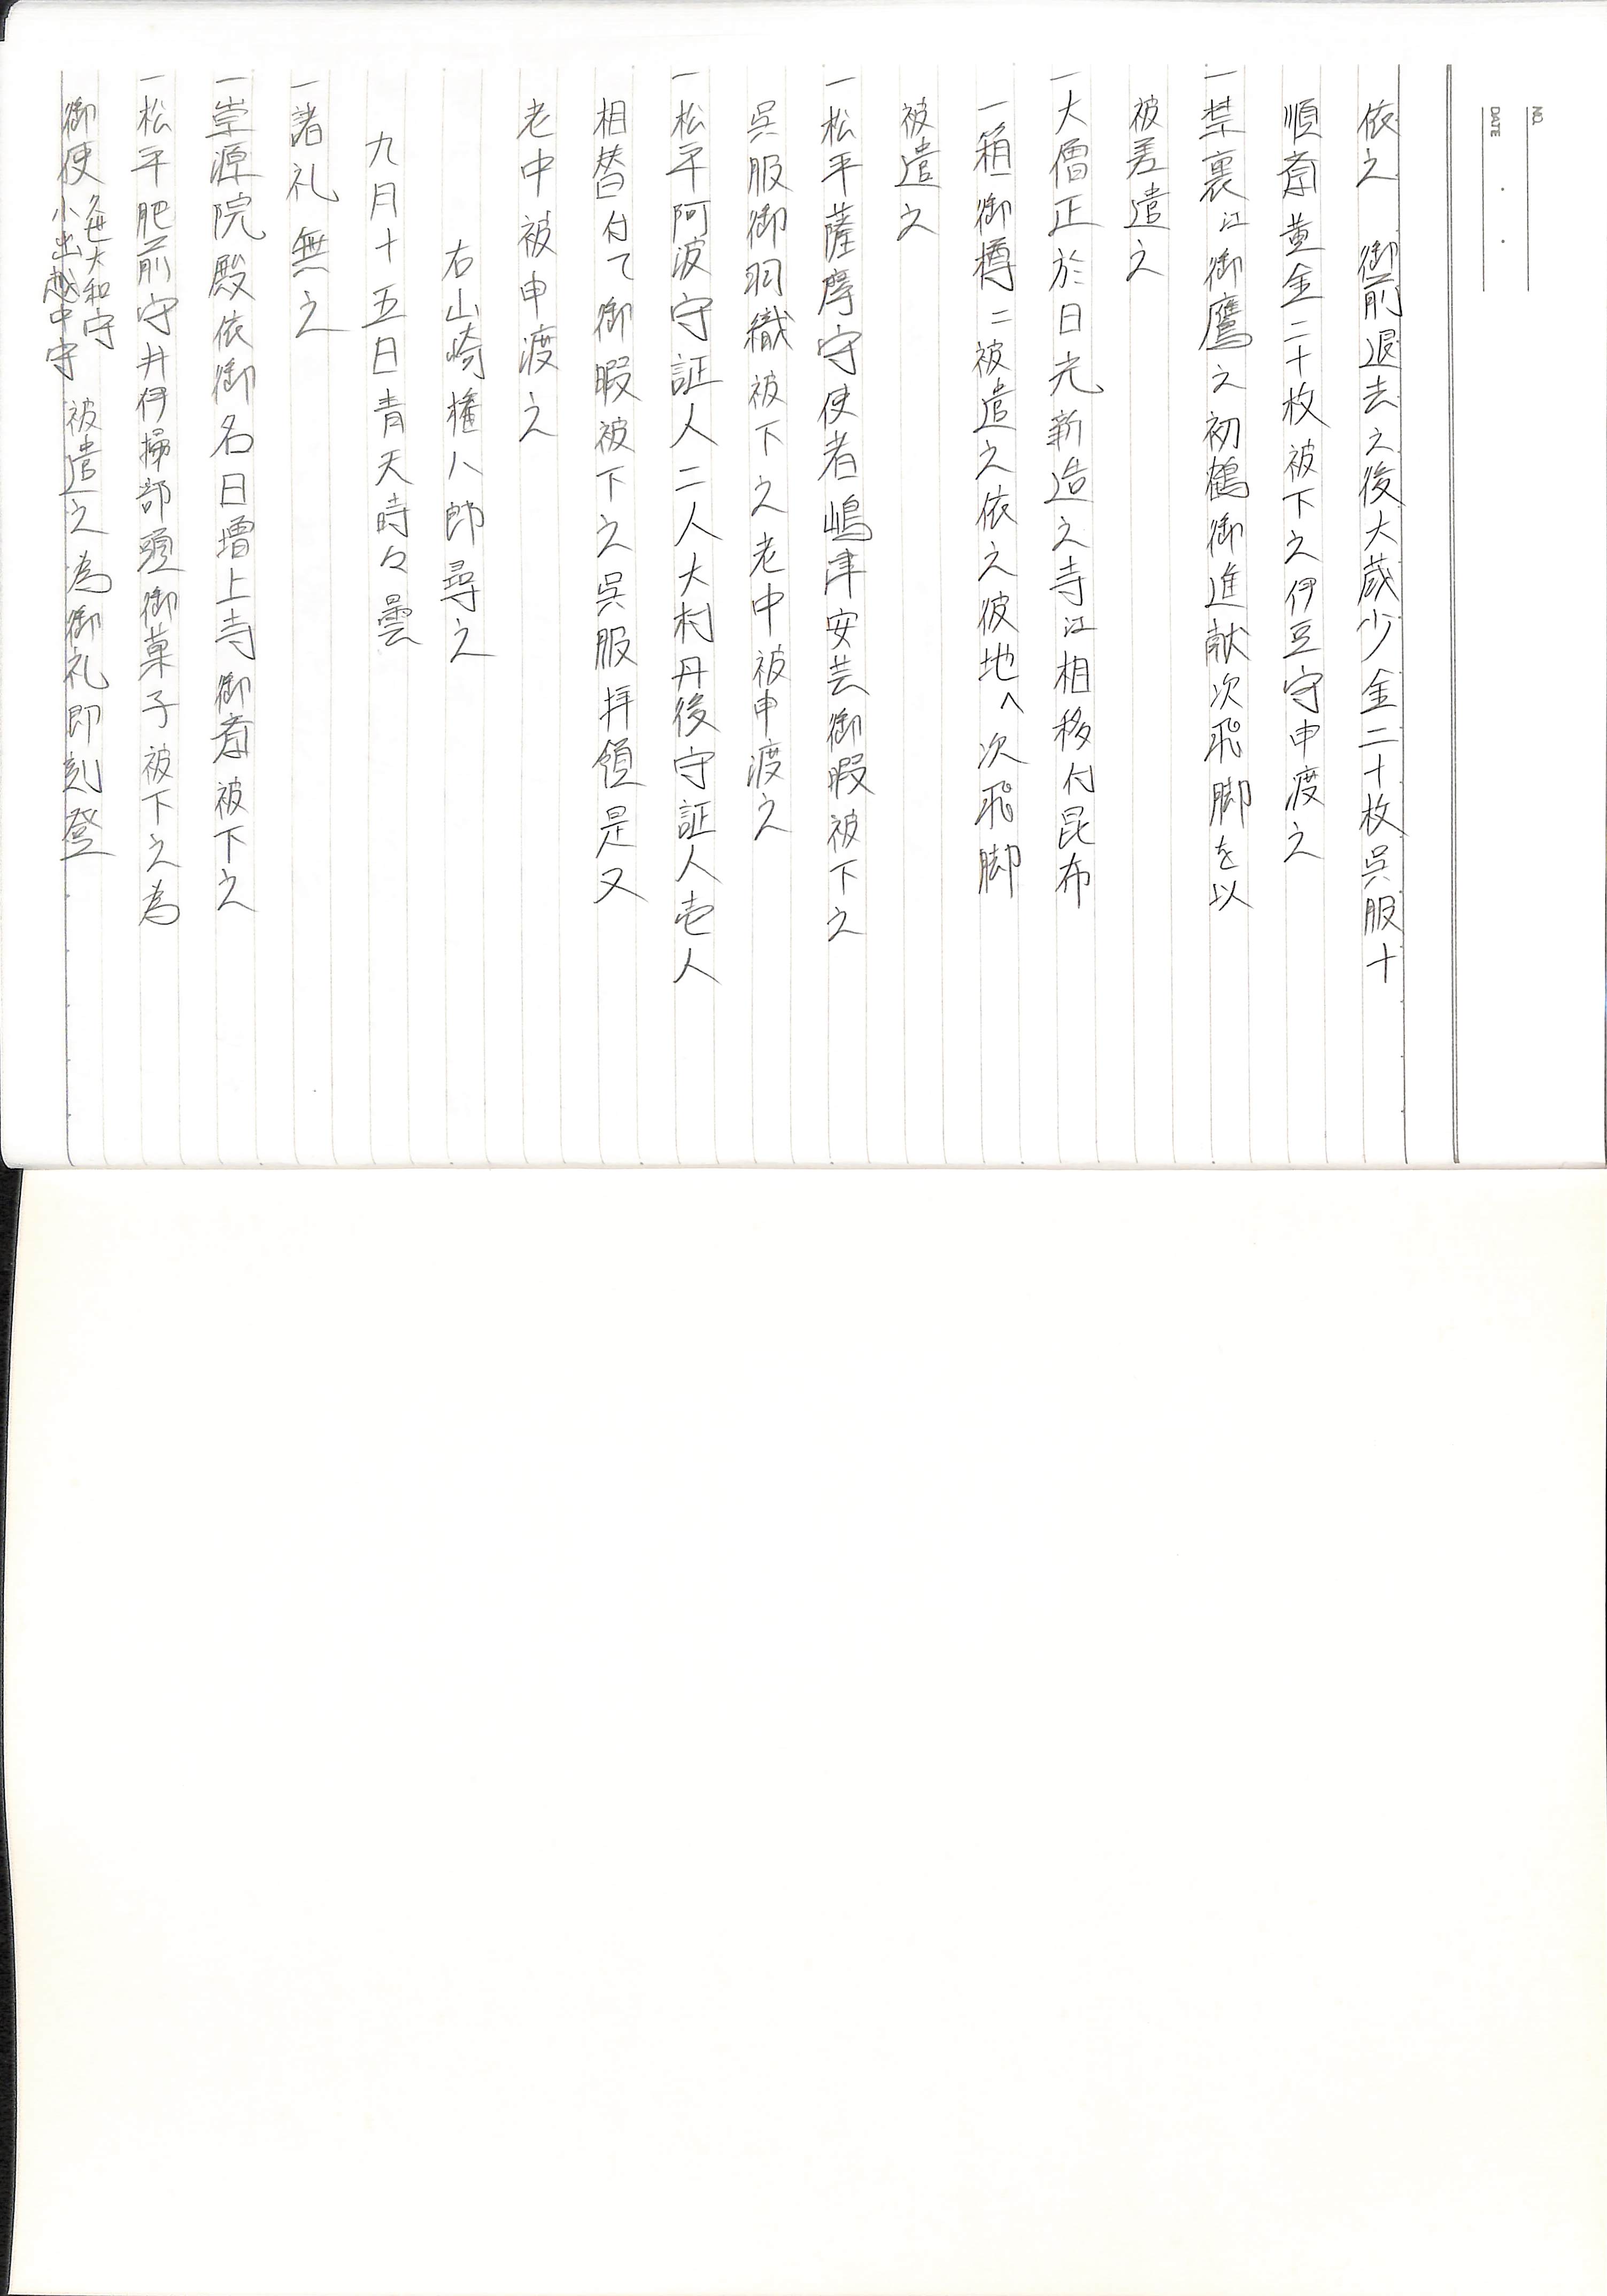 NO.
DATE
依之　御前退去之後大蔵少金二十枚呉服十
順斎黄金二十枚被下之伊豆守申渡之
一禁裏江御鷹之初鶴御進献次飛脚を以
被差遣之
一大僧正於日光新造之寺江相移付昆布
一箱御樽二被遣之依之彼地へ次飛脚
被遣之
一松平薩摩守使者嶋津安芸御暇被下之
呉服御羽織被下之老中被申渡之
一松平阿波守証人二人大村丹後守証人壱人
相替付て御暇被下之呉服拝領是又
老中被申渡之
右山崎権八郎尋之
九月十五日青天時々曇
一諸礼無之
一崇源院殿依御名日増上寺御斎被下之
一松平肥前守井伊掃部頭御菓子被下之為
御使久世大和守小出越中守　被遣之為御礼即刻登